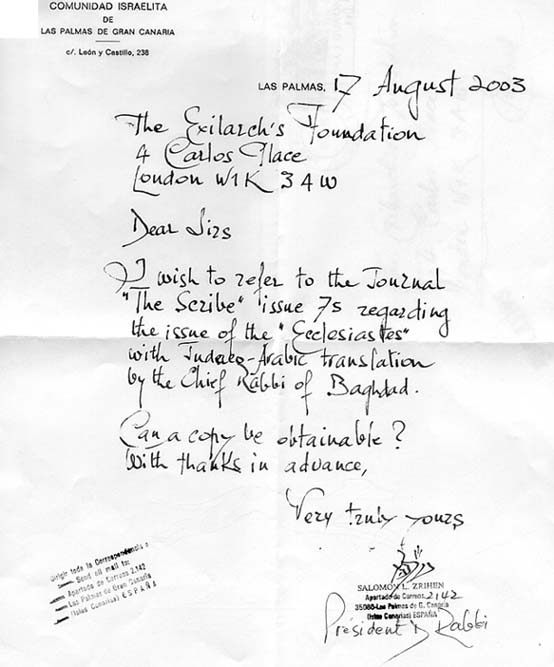 COMUNIDAD ISRAELITA
DE
LAS PALMAS DE GRAN CANARIA
c/. León y Castillo, 238
LAS PALMAS, 17 August 2003
The Exilarch's Foundation
4 Carlos Place
London W1K 3AW
Dear Sirs
I wish to refer to the Journal
"The Scribe" issue 75 regarding
the issue of the "Ecclesiastes"
with Judaeo-Arabic translation
by the Chief Rabbi of Baghdad.
Can a copy be obtainable?
With thanks in advance,
Very truly yours
Dirigir toda la Correspondencia a
Send all mail to:
Apartado de Correos 2.142
Las Palmas de Gran Canaria
(Islas Canarias) ESPAÑA
SALOMON L. ZRIHEN
Apartado de Correos 2142
35080-Las Palmas de G. Canaria
(Islas Canarias) ESPAÑA
President Rabbi